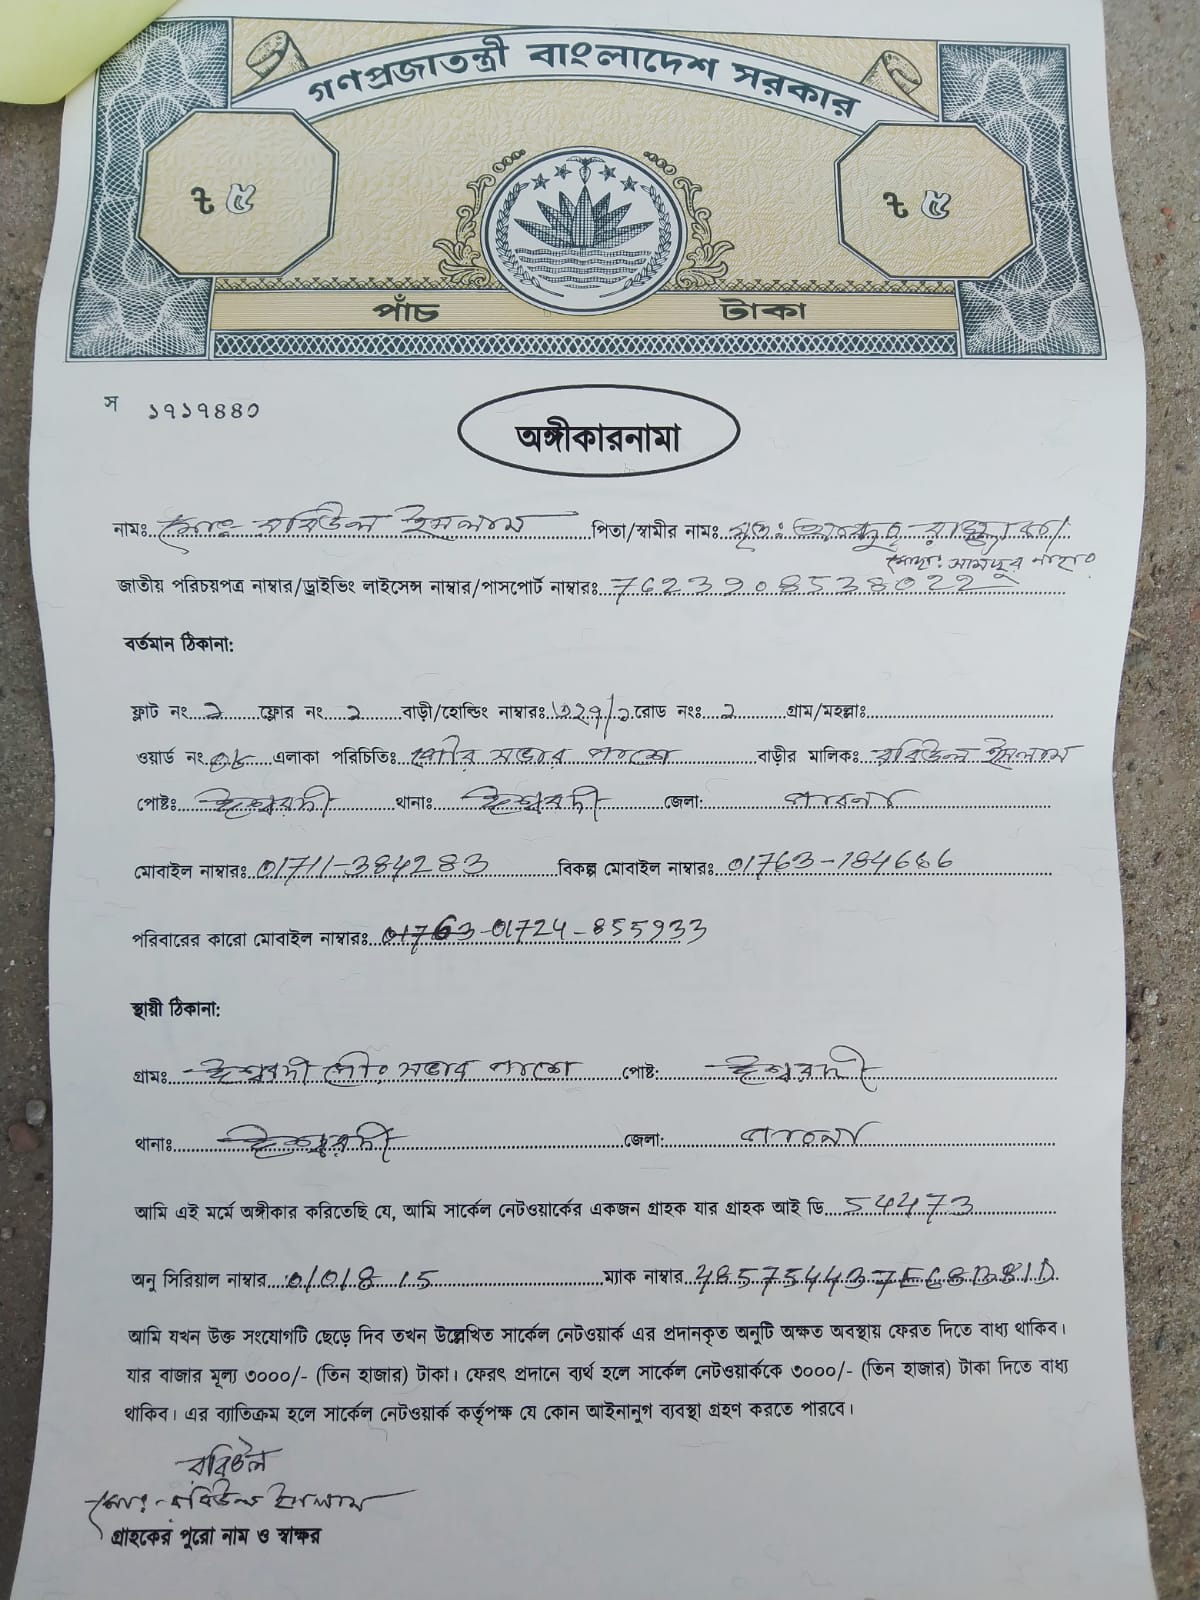 গণপ্রজাতন্ত্রী বাংলাদেশ সরকার
৳ ৫ ৳ ৫
পাঁচ টাকা
স ১৭১৭৪৪০
অঙ্গীকারনামা
নামঃ মোঃ রবিউল ইসলাম পিতা/স্বামীর নামঃ মৃতঃ আবদুর রাজ্জাক/
মোছাঃ সামছুন নাহার
জাতীয় পরিচয়পত্র নাম্বার/ড্রাইভিং লাইসেন্স নাম্বার/পাসপোর্ট নাম্বারঃ 7623908538022
বর্তমান ঠিকানা:
ফ্লাট নং ২ ফ্লোর নং ২ বাড়ী/হোল্ডিং নাম্বারঃ ৩২৭/১ রোড নংঃ ২ গ্রাম/মহল্লাঃ
ওয়ার্ড নং ০৮ এলাকা পরিচিতিঃ পৌর সভার পাশে বাড়ীর মালিকঃ রবিউল ইসলাম
পোষ্টঃ ঈশ্বরদী থানাঃ ঈশ্বরদী জেলা: পাবনা
মোবাইল নাম্বারঃ 01711-384283 বিকল্প মোবাইল নাম্বারঃ 01763-184666
পরিবারের কারো মোবাইল নাম্বারঃ 01763-01724-855933
স্থায়ী ঠিকানা:
গ্রামঃ ঈশ্বরদী পৌর সভার পাশে পোষ্ট: ঈশ্বরদী
থানাঃ ঈশ্বরদী জেলা: পাবনা
আমি এই মর্মে অঙ্গীকার করিতেছি যে, আমি সার্কেল নেটওয়ার্কের একজন গ্রাহক যার গ্রাহক আই ডি 54473
অনু সিরিয়াল নাম্বার 0101815 ম্যাক নাম্বার
আমি যখন উক্ত সংযোগটি ছেড়ে দিব তখন উল্লেখিত সার্কেল নেটওয়ার্ক এর প্রদানকৃত অনুটি অক্ষত অবস্থায় ফেরত দিতে বাধ্য থাকিব।
যার বাজার মূল্য ৩০০০/- (তিন হাজার) টাকা। ফেরৎ প্রদানে ব্যর্থ হলে সার্কেল নেটওয়ার্ককে ৩০০০/- (তিন হাজার) টাকা দিতে বাধ্য
থাকিব। এর ব্যাতিক্রম হলে সার্কেল নেটওয়ার্ক কর্তৃপক্ষ যে কোন আইনানুগ ব্যবস্থা গ্রহণ করতে পারবে।
রবিউল
মোঃ রবিউল ইসলাম
গ্রাহকের পুরো নাম ও স্বাক্ষর